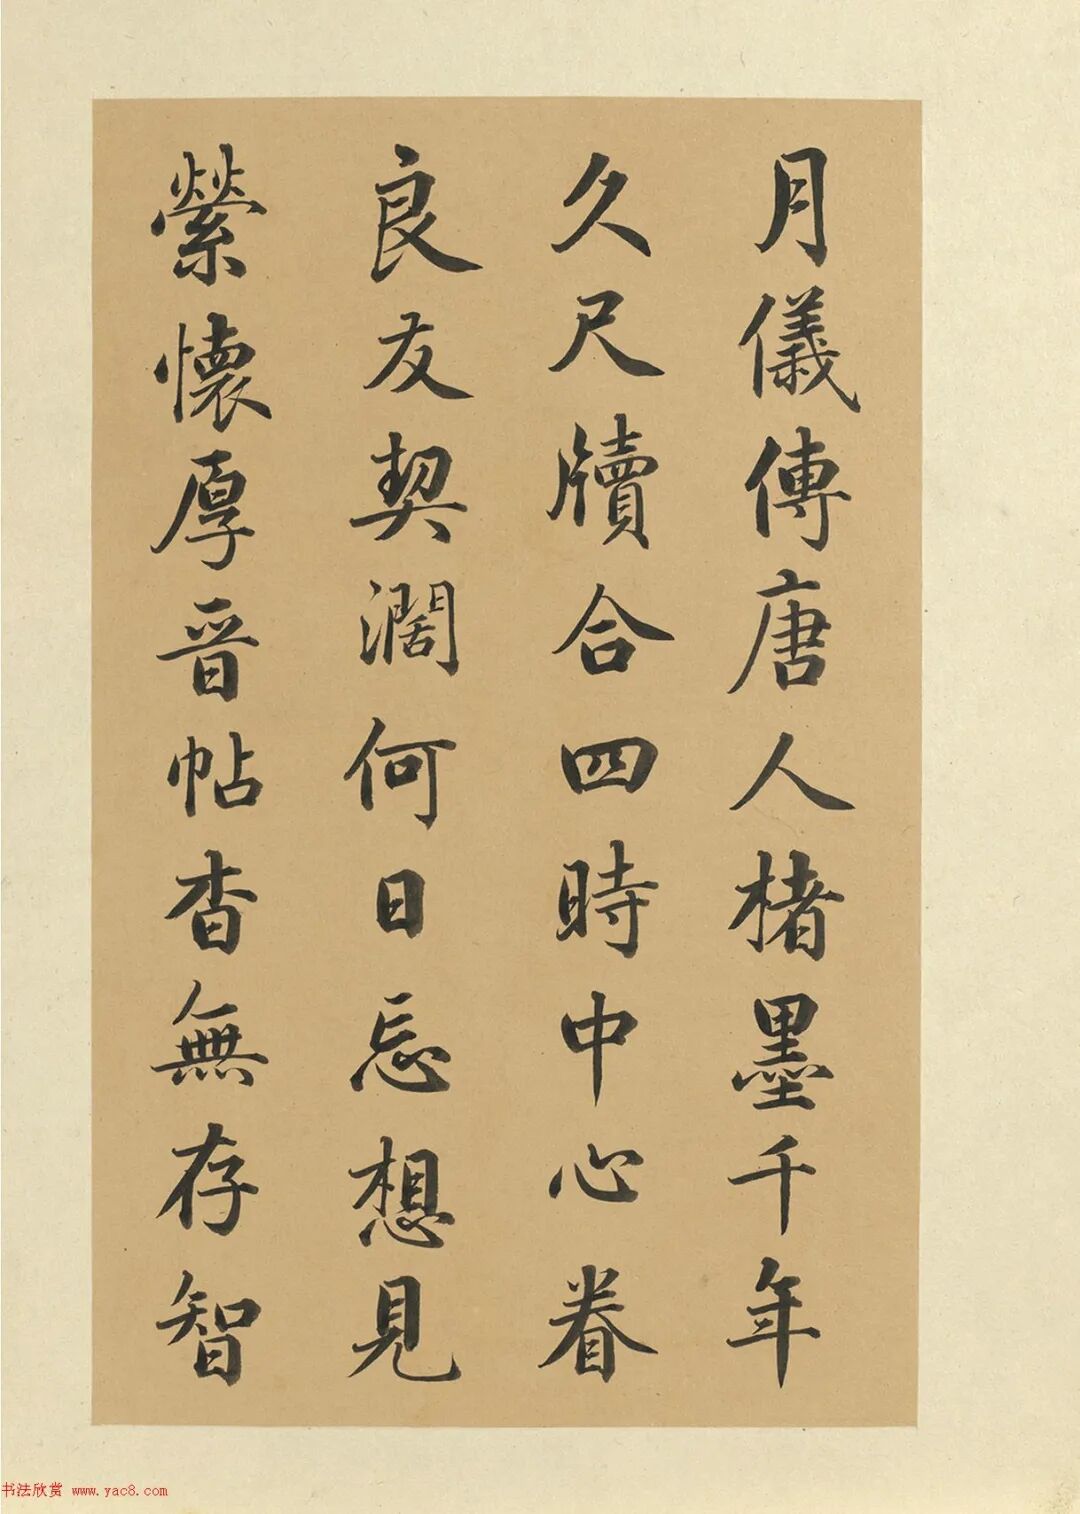 月儀傳唐人楮墨千年
久尺牘合四時中心眷
良友契濶何日忘想見
縈懷厚晉帖杳無存智
书法欣赏 www.yac8.com